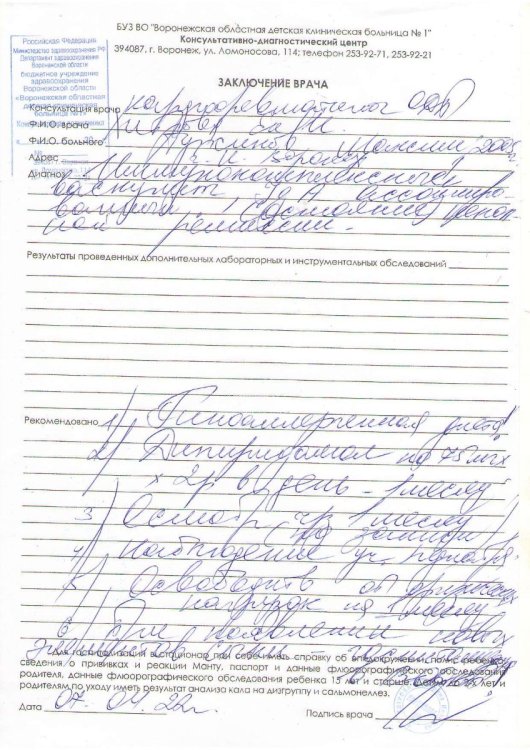 БУЗ ВО "Воронежская областная детская клиническая больница № 1"
Консультативно-диагностический центр
394087, г. Воронеж, ул. Ломоносова, 114; телефон 253-92-71, 253-92-21
Российская Федерация
Министерство здравоохранения РФ
Департамент здравоохранения
Воронежской области
бюджетное учреждение
здравоохранения
Воронежской области
«Воронежская областная
больница №1»
ЗАКЛЮЧЕНИЕ ВРАЧА
Консультация врача кардиоревматолог
Ф.И.О. врача
Ф.И.О. больного
Адрес г. Воронеж
Диагноз Иммунокомплексный
васкулит, IgA ассоцииро-
ванный. Состояние непол-
ной ремиссии.
Результаты проведенных дополнительных лабораторных и инструментальных обследований
Рекомендовано 1) Гипоаллергенная диета
2) Дипиридамол по 75 мг
х 2р в день - 1 месяц
3) Осмотр чз 1 месяц
(по записи)
4) Наблюдение уч. педиатра
5) Освободить от физических
нагрузок на 1 месяц
6) При появлении новых
Для госпитализации в стационар при себе иметь справку об эпидокружении, полис ребенка,
сведения о прививках и реакции Манту, паспорт и данные флюорографического обследования
родителя, данные флюорографического обследования ребенка 15 лет и старше. Детям до 2х лет и
родителям по уходу иметь результат анализа кала на дизгруппу и сальмонеллез.
Дата 07.04.22г.
Подпись врача